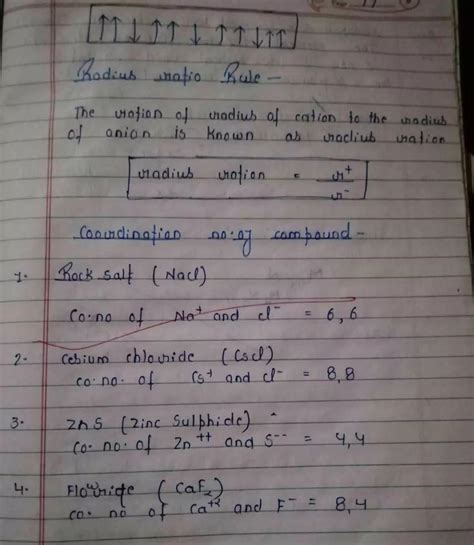 ↑↑↓↑↑↓↑↑↓↑↑
Radius ratio Rule -
The ration of radius of cation to the radius
of anion is known as radius ration
radius ration = r+
r-
Coordination no. of compound -
1. Rock salt (Nacl)
Co. no of Na+ and cl- = 6,6
2. Cesium chloride (Cscl)
co. no. of Cs+ and cl- = 8,8
3. ZnS (Zinc Sulphide)
co. no. of Zn++ and S-- = 4,4
4. Flouride (CaF2)
co. no of Ca+2 and F- = 8,4